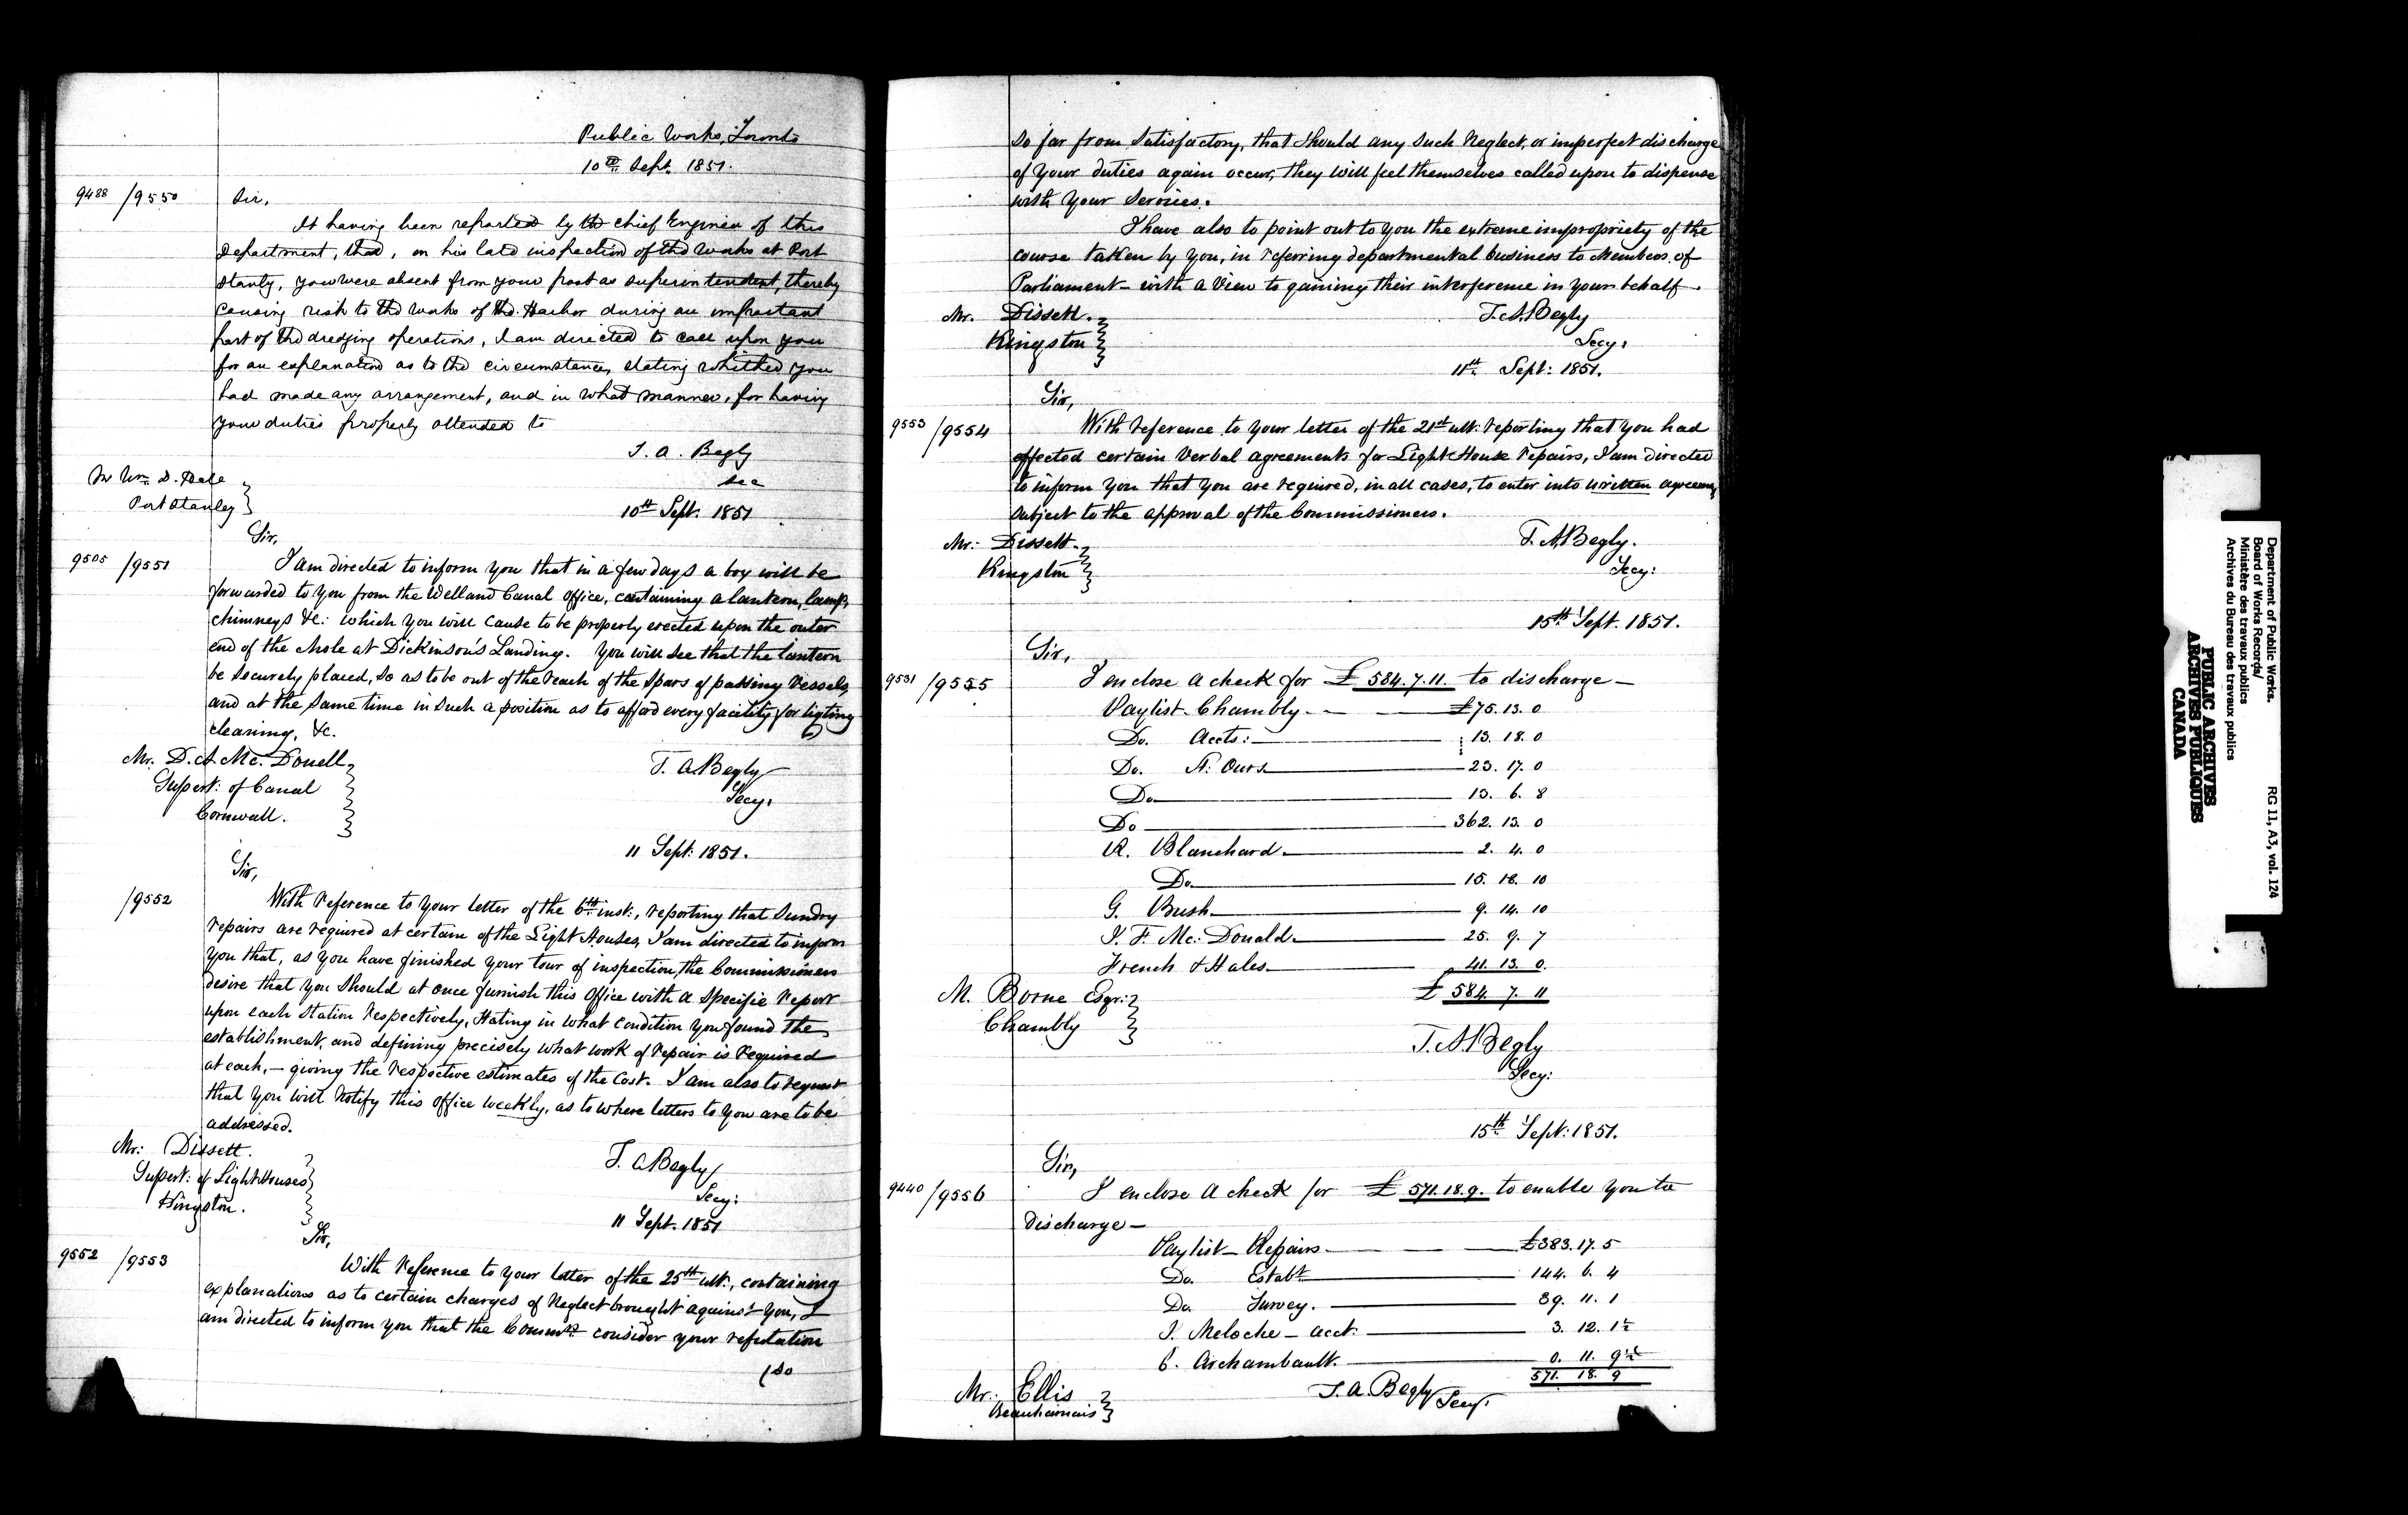 Public Works, Toronto
10th Sept. 1851.
9488 /9550 Sir,
It having been reported by the chief Engineer of this
Department, that, on his late inspection of the works at Port
Stanly, you were absent from your post as superintendent, thereby
causing risk to the works of the Harbor during an important
part of the dredging operations, I am directed to call upon you
for an explanation as to the circumstances, stating whether you
had made any arrangement, and in what manner, for having
your duties properly attended to
T. A. Begly
Sec
Mr Wm. D. Dale
Port Stanley
10th Sept. 1851
Sir,
9505 /9551 I am directed to inform you that in a few days a box will be
forwarded to you from the Welland Canal Office, containing a lantern, lamps,
chimneys &c: which you will cause to be properly erected upon the outer
end of the Mole at Dickinson's Landing. You will see that the lantern
be securely placed, so as to be out of the reach of the spars of passing Vessels,
and at the same time in such a position as to afford every facility for ligting
cleaning, &c.
Mr. D. A. Mc. Donell
Supert: of Canal
Cornwall.
T. A Begly
Secy:
11 Sept: 1851.
Sir,
/9552 With reference to your letter of the 6th inst:, reporting that sundry
repairs are required at certain of the Light Houses, I am directed to inform
you that, as you have finished your tour of inspection, the Commissioners
desire that you should at once furnish this Office with a specific report
upon each station respectively, stating in what condition you found the
establishment, and defining precisely what work of repair is required
at each, — giving the respective estimates of the Cost. I am also to request
that you will notify this office weekly, as to where letters to you are to be
addressed.
Mr: Dissett.
Supert: of Light Houses
Kingston.
T. A Begly
Secy:
11 Sept. 1851
Sir,
9552 /9553 With reference to your letter of the 25th ult., containing
explanations as to certain charges of Neglect brought against you, I
am directed to inform you that the Commrs. consider your refutation
(so
so far from satisfactory, that should any such Neglect, or imperfect discharge
of your duties again occur, they will feel themselves called upon to dispense
with your services.
I have also to point out to you the extreme impropriety of the
course taken by you, in referring departmental business to Members of
Parliament — with a view to gaining their interference in your behalf.
Mr. Dissett.
Kingston
T. A. Begly
Secy:
11th Sept: 1851.
Sir,
9553 /9554 With reference to your letter of the 21st ult: reporting that you had
effected certain Verbal agreements for Light House repairs, I am directed
to inform you that you are required, in all cases, to enter into written agreemts
subject to the approval of the Commissioners.
Mr: Dissett.
Kingston
T. A. Begly.
Secy:
15th Sept. 1851.
Sir,
9531 /9555 I enclose a check for £ 584. 7. 11. to discharge —
Paylist Chambly — £75. 13. 0
Do. Accts: — 13. 18. 0
Do. St. Ours — 23. 17. 0
Do — 13. 6. 8
Do — 362. 13. 0
R. Blanchard — 2. 4. 0
Do — 15. 18. 10
G. Bush — 9. 14. 10
J. F. Mc: Donald — 25. 9. 7
French & Hales — 41. 13. 0.
£ 584. 7. 11
M. Borne Esqr:
Chambly
T. A. Begly
Secy:
15th Sept: 1851.
Sir,
9440 /9556 I enclose a check for £ 571. 18. 9. to enable you to
discharge —
Paylist — Repairs — £383. 17. 5
Do. Establt — 144. 6. 4
Do Survey. — 39. 11. 1
J. Meloche — acct: — 3. 12. 1½
C. Archambault. — 0. 11. 9½
571. 18. 9
Mr: Ellis
Beauharnais
T. A. Begly Secy.
Department of Public Works.
Board of Works Records/
Ministère des travaux publics
Archives du Bureau des travaux publics
RG 11, A3, vol. 124
PUBLIC ARCHIVES
ARCHIVES PUBLIQUES
CANADA